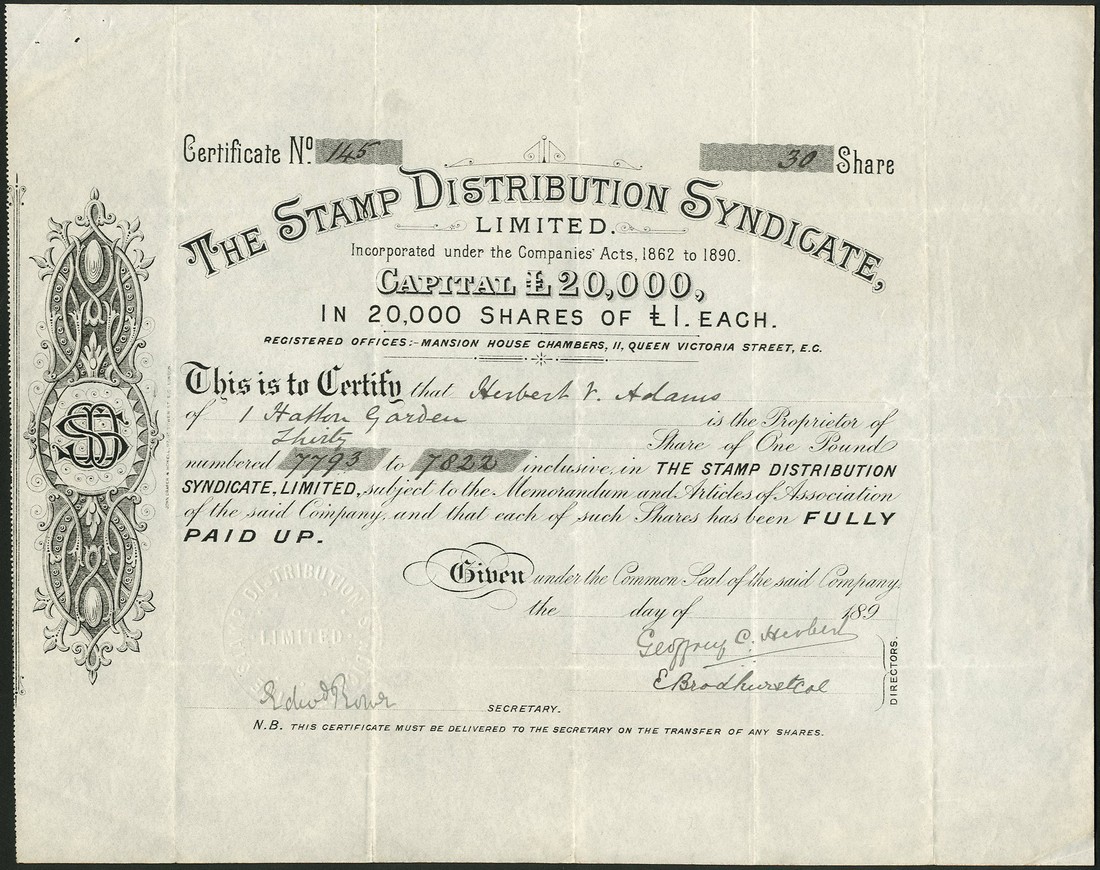 Certificate Nº 145
30 Share
THE STAMP DISTRIBUTION SYNDICATE,
LIMITED.
Incorporated under the Companies' Acts, 1862 to 1890.
CAPITAL £20,000,
IN 20,000 SHARES OF £1. EACH.
REGISTERED OFFICES:- MANSION HOUSE CHAMBERS, 11, QUEEN VICTORIA STREET, E.C.
This is to Certify that Herbert V. Adams
of 1 Hatton Garden is the Proprietor of
Thirty Share of One Pound
numbered 7793 to 7822 inclusive, in THE STAMP DISTRIBUTION
SYNDICATE, LIMITED, subject to the Memorandum and Articles of Association
of the said Company, and that each of such Shares has been FULLY
PAID UP.
Given under the Common Seal of the said Company,
the day of 189
Geoffrey C. Herbert
E Brodhurst
DIRECTORS.
DISTRIBUTION
LIMITED
SECRETARY.
N.B. THIS CERTIFICATE MUST BE DELIVERED TO THE SECRETARY ON THE TRANSFER OF ANY SHARES.